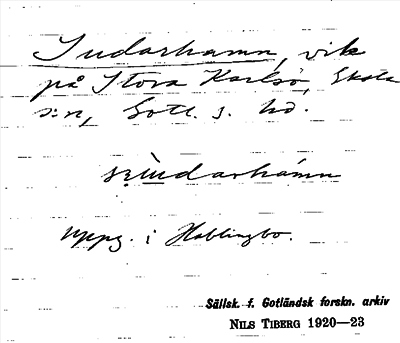 Sudarhamn, vik
på Stora Karlsö, Eksta
s:n, Gotl. s. hd.
uppg. i Hablingbo.
Sällsk. f. Gotländsk forskn. arkiv
NILS TIBERG 1920—23